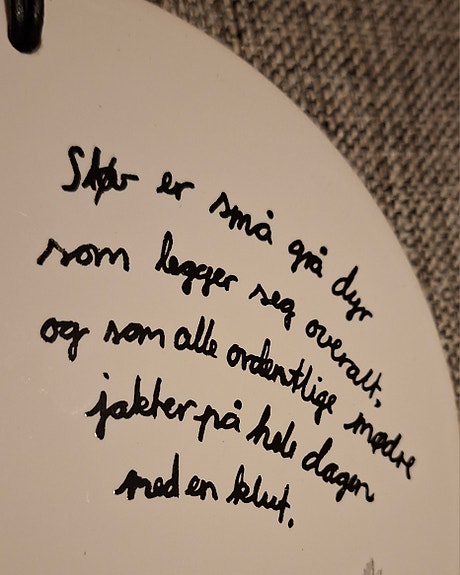 Støv er små grå dyr
som legger seg overalt,
og som alle ordentlige mødre
jakter på hele dagen
med en klut.